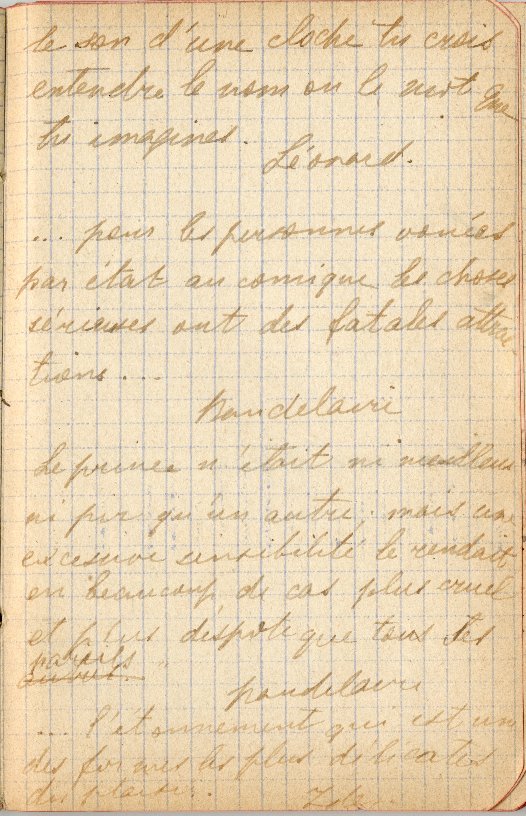 le son d'une cloche tu crois
entendre le nom ou le mot que
tu imagines.
Léonard.
... pour les personnes vouées
par état au comique les choses
sérieuses ont des fatales attrac
tions ...
Baudelaire
Le prince n'était ni meilleur
ni pire qu'un autre; mais une
excessive sensibilité le rendait,
en beaucoup de cas plus cruel
et plus despote que tous ses
pareils
Baudelaire
... l'étonnement qui est une
des formes les plus délicates
du plaisir.